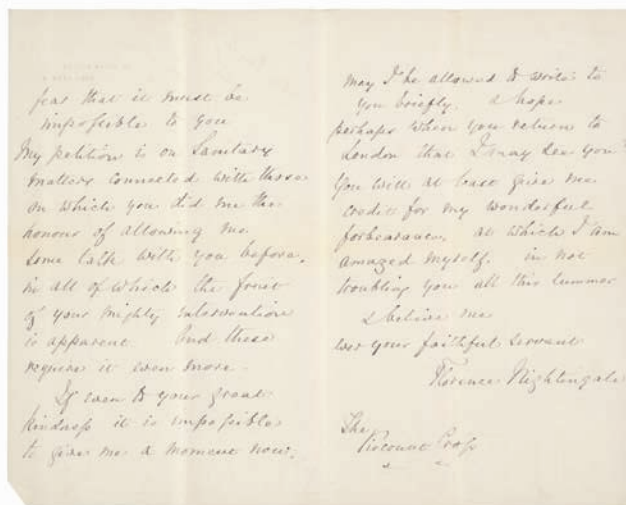 fear that it must be
impossible to you
My petition is on Sanitary
matters connected with those
on which you did me the
honour of allowing me
some talk with you before.
in all of which the fruit
of your mighty intervention
is apparent And these
require it even more.
If even to your great
kindness it is impossible
to give me a moment now,
may I be allowed to write to
you briefly. & hope
perhaps when you return to
London that I may see you?
You will at least give me
credit for my wonderful
forbearance, at which I am
amazed myself. in not
troubling you all this summer
& believe me
ever your faithful servant
Florence Nightingale
The
Viscount Cross